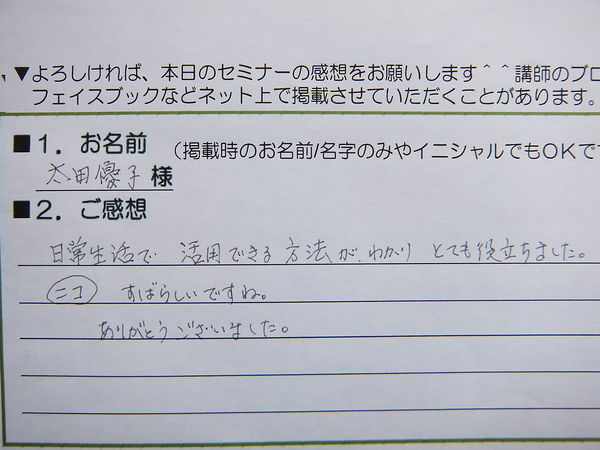 ▼よろしければ、本日のセミナーの感想をお願いします＾＾講師のブロ
フェイスブックなどネット上で掲載させていただくことがあります。
■１．お名前 （掲載時のお名前/名字のみやイニシャルでもＯＫで
太田優子 様
■２．ご感想
日常生活で 活用できる方法が、わかり とても役立ちました。
ニコ すばらしいですね。
ありがとうございました。